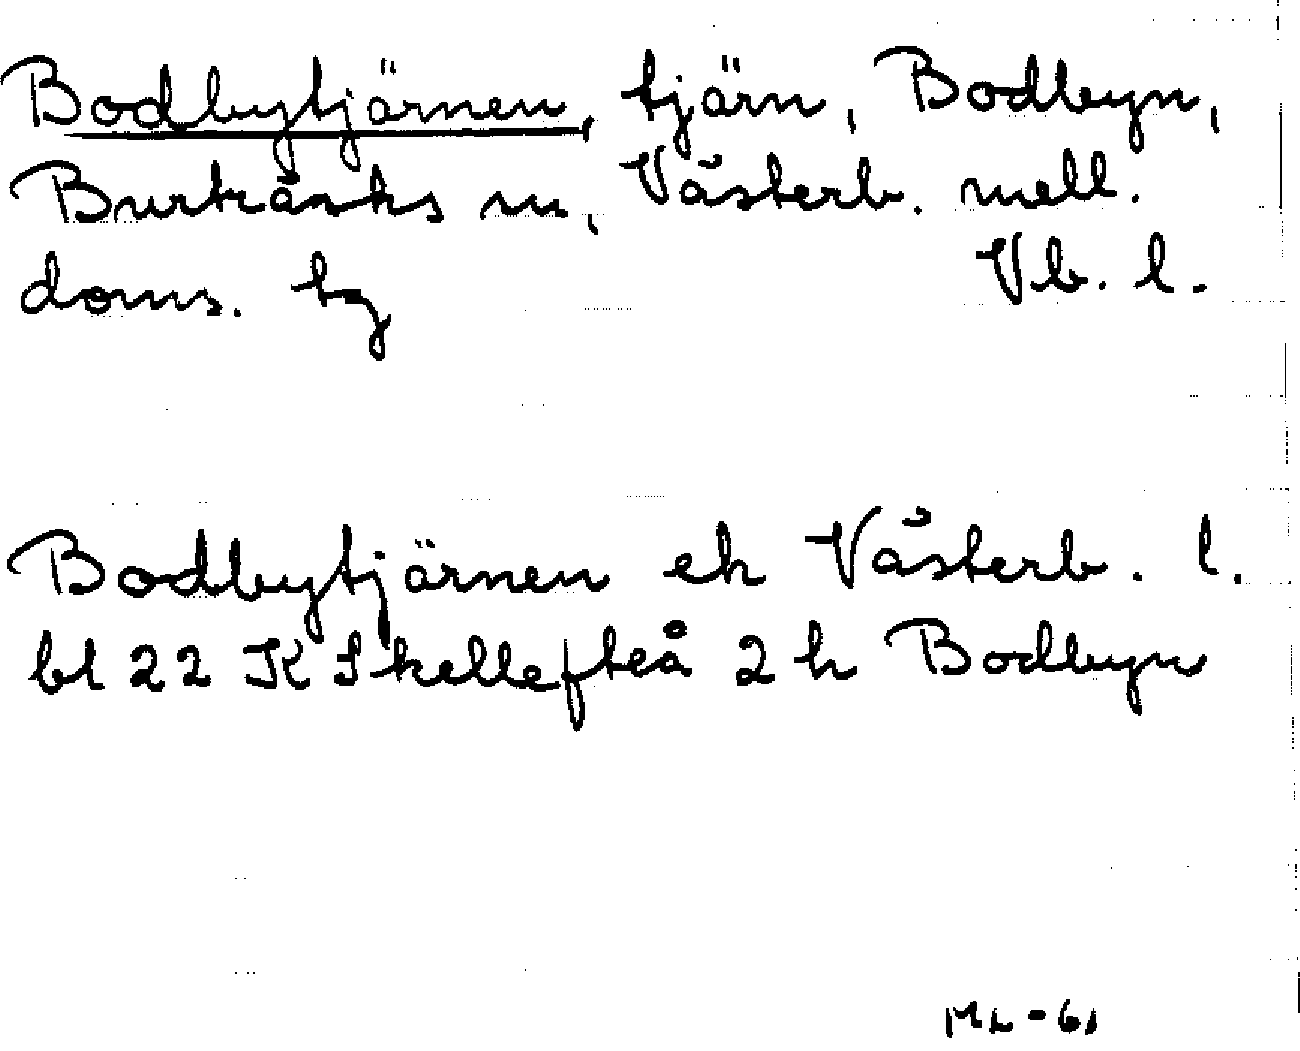 Bodbytjärnen, tjärn, Bodbyn,
Burträsks sn, Västerb. mell.
doms. tg Vb. l.
Bodbytjärnen ek Västerb. l.
bl 22 K Skellefteå 2 h Bodbyn
ML - 61